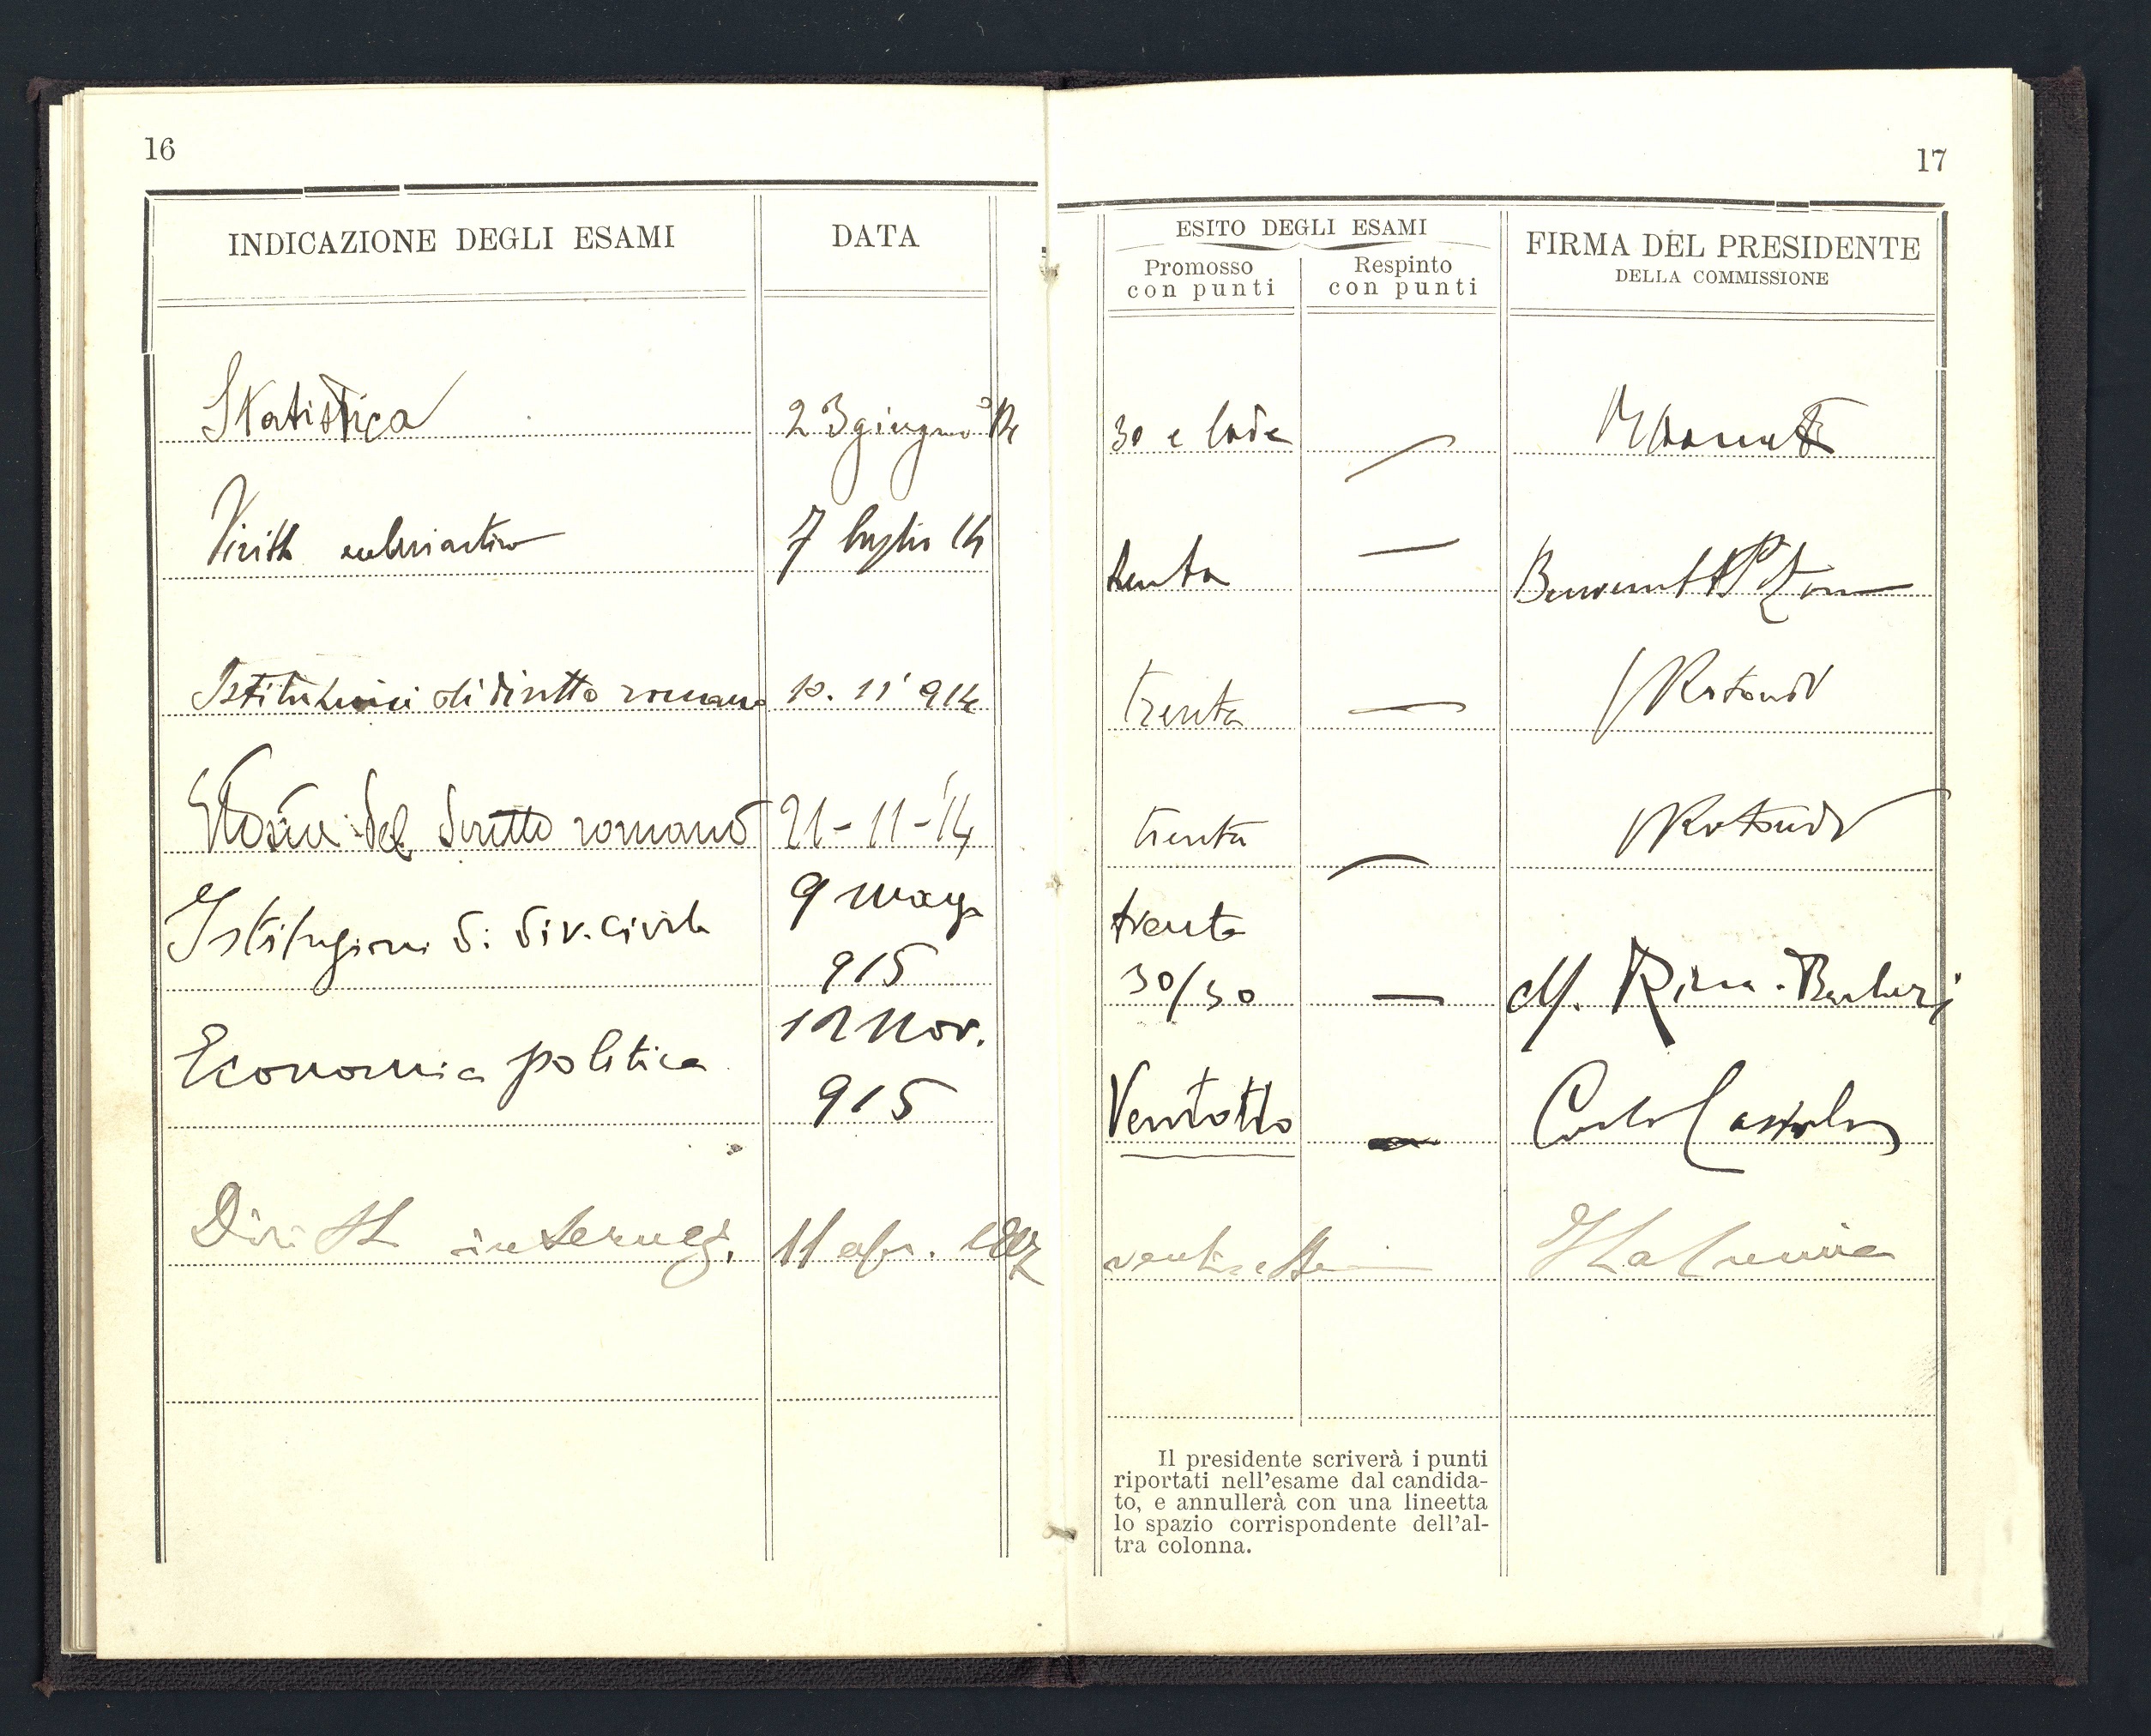 16
INDICAZIONE DEGLI ESAMI
DATA
Statistica
23 giugno 14
Diritto ecclesiastico
7 luglio 14
Istituzioni di diritto romano
10. 11 914
Storia del diritto romano
21-11-14
Istituzioni di dir. civile
9 magg
915
Economia politica
12 Nov.
915
Diritto internaz.
11 apr.
17
ESITO DEGLI ESAMI
Promosso
con punti
Respinto
con punti
FIRMA DEL PRESIDENTE
DELLA COMMISSIONE
30 e lode
—
trenta
—
trenta
—
Rotondi
trenta
—
Rotondi
trenta
30/30
—
Ventotto
—
Carlo
ventisette
Il presidente scriverà i punti
riportati nell'esame dal candida-
to, e annullerà con una lineetta
lo spazio corrispondente dell'al-
tra colonna.